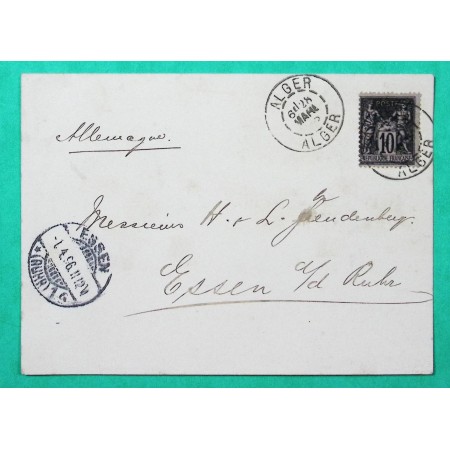 ALGER
MARS
ALGER
POSTES
10
REPUBLIQUE FRANÇAISE
ALGER
Allemagne.
Messieurs H. & L. Freudenberg.
Essen a/d Ruhr
ESSEN
1.4.96.11-12V
(RUHR)